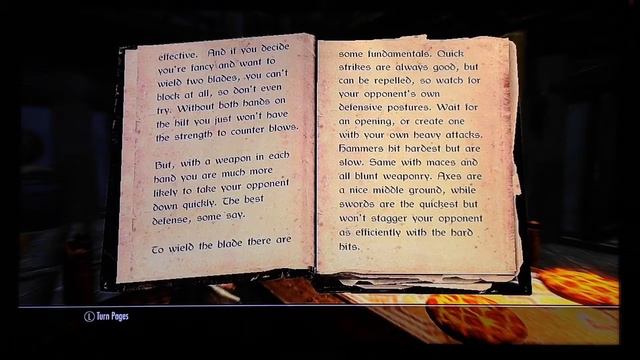 effective. And if you decide
you're fancy and want to
wield two blades, you can't
block at all, so don't even
try. Without both hands on
the hilt you just won't have
the strength to counter blows.
But, with a weapon in each
hand you are much more
likely to take your opponent
down quickly. The best
defense, some say.
To wield the blade there are
some fundamentals. Quick
strikes are always good, but
can be repelled, so watch for
your opponent's own
defensive postures. Wait for
an opening, or create one
with your own heavy attacks.
Hammers hit hardest but are
slow. Same with maces and
all blunt weaponry. Axes are
a nice middle ground, while
swords are the quickest but
won't stagger your opponent
as efficiently with the hard
hits.
L Turn Pages